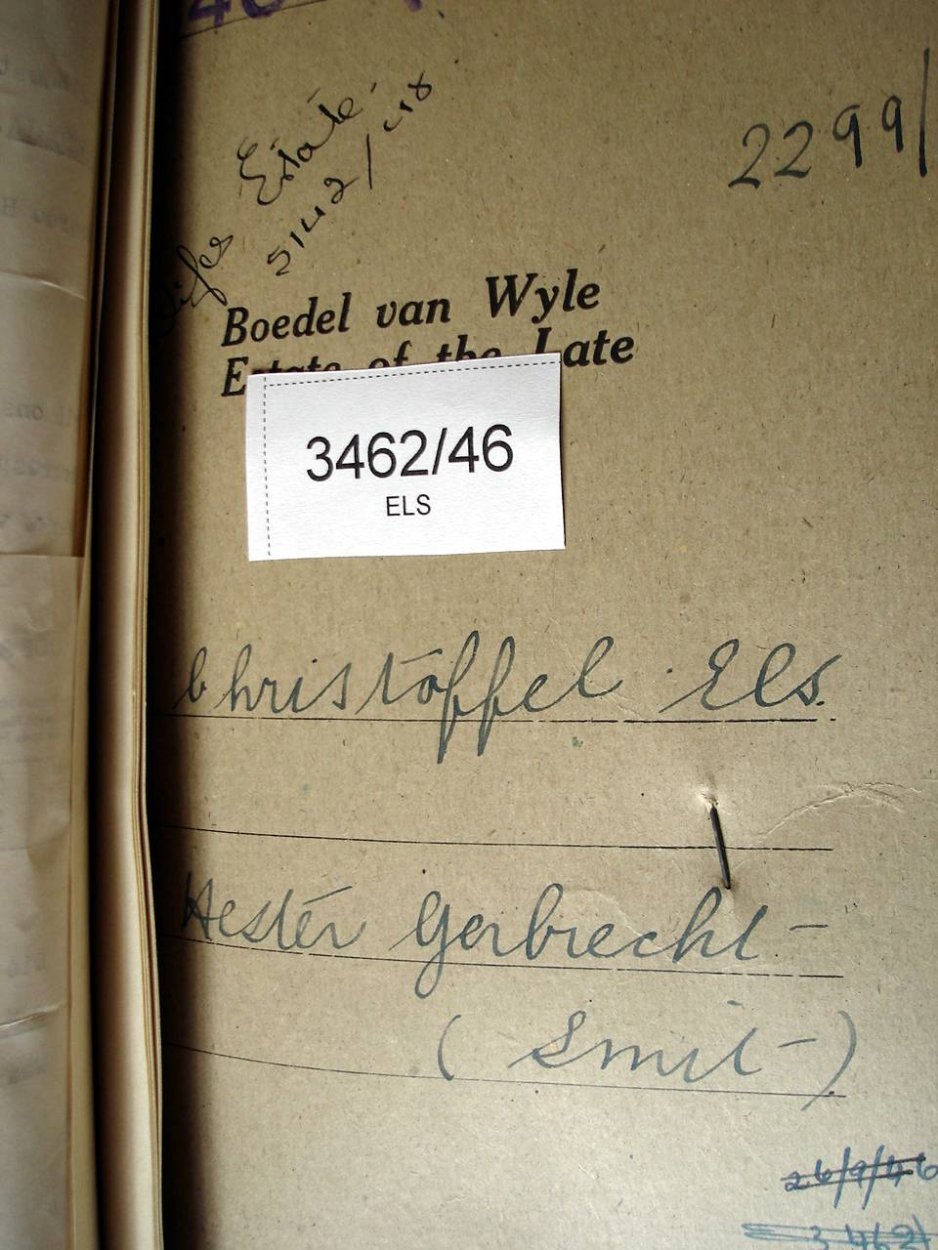 Estate.
5142/48
2299/
Boedel van Wyle
Estate of the Late
3462/46
ELS
Christoffel Els.
Hester Gerbrecht -
( Smit - )
26/9/46